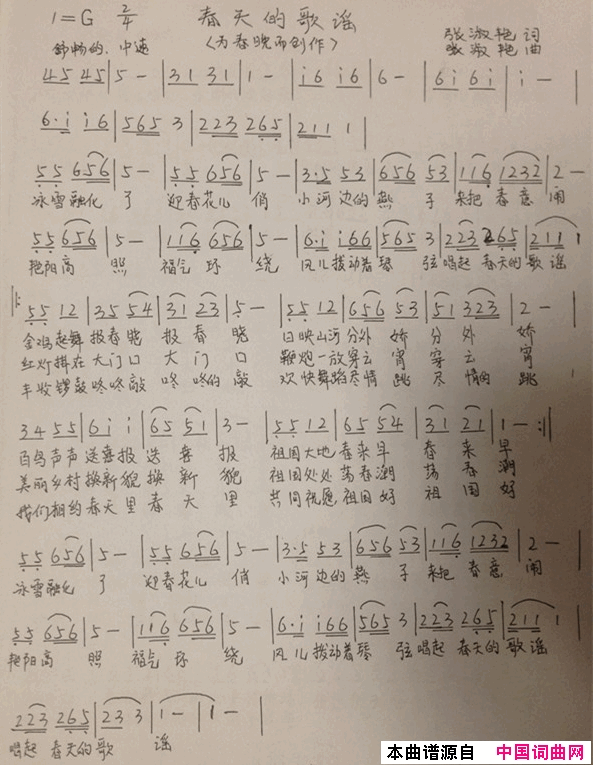 1=G 2/4 春天的歌谣
舒畅的、中速 （为春晚而创作） 张淑艳 词
张淑艳 曲
45 45 | 5 - | 31 31 | 1 - | i6 i6 | 6 - | 6i 6i | i - |
6·i i6 | 565 3 | 223 265 | 211 1 |
55 656 | 5 - | 55 656 | 5 - | 3·5 53 | 656 53 | 116 1232 | 2 -
冰雪融化 了 迎春花儿 俏 小河边的 燕 子 来把 春意 闹
55 656 | 5 - | 116 656 | 5 - | 6·i i66 | 565 3 | 223 265 | 211 1
艳阳高 照 福气 环 绕 风儿拨动着 琴 弦 唱起 春天的 歌 谣
‖: 55 12 | 35 54 | 31 23 | 5 - | 55 12 | 656 53 | 51 323 | 2 - |
金鸡起舞 报春晓 报 春 晓 日映山河 分外 娇 分 外 娇
红灯挂在 大门口 大 门 口 鞭炮一放 穿云 宵 穿 云 宵
丰收锣鼓 咚咚敲 咚 咚的 敲 欢快舞蹈 尽情 跳 尽 情的 跳
34 55 | 6i i | 65 51 | 3 - | 55 12 | 65 54 | 31 21 | 1 - :‖
百鸟声声 送喜报 送 喜 报 祖国大地 春来早 春 来 早
美丽乡村 换新貌 换 新 貌 祖国处处 荡春潮 荡 春 潮
我们相约 春天里 春 天 里 共同祝愿 祖国好 祖 国 好
55 656 | 5 - | 55 656 | 5 - | 3·5 53 | 656 53 | 116 1232 | 2 - |
冰雪融化 了 迎春花儿 俏 小河边的 燕 子 来把 春意 闹
55 656 | 5 - | 116 656 | 5 - | 6·i i66 | 565 3 | 223 265 | 211 1 |
艳阳高 照 福气 环 绕 风儿拨动着 琴 弦 唱起 春天的 歌 谣
223 265 | 23 3 | 1 - | 1 - |
唱起 春天的 歌 谣
本曲谱源自 中国词曲网